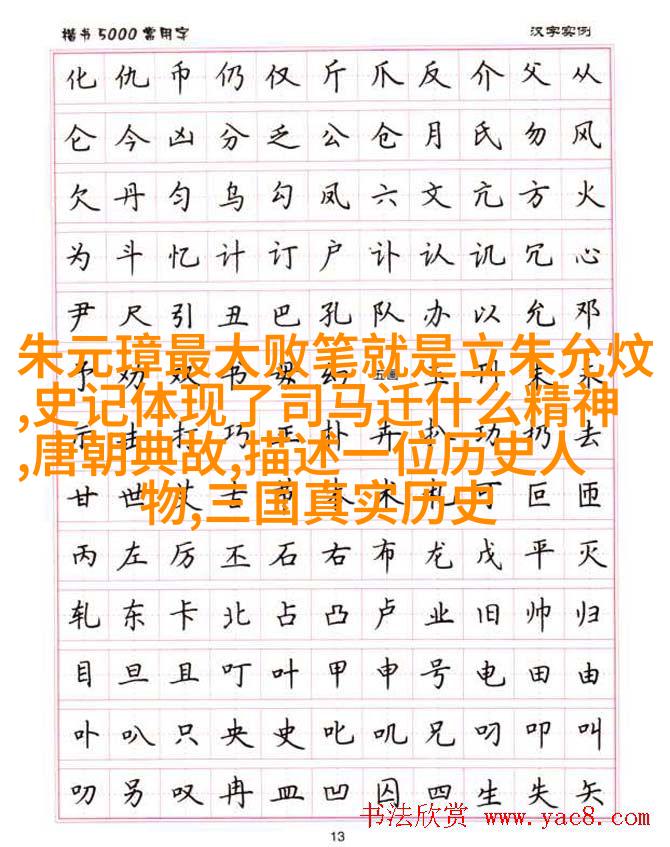 楷书5000常用字 汉字实例
化 仇 币 仍 仅 斤 爪 反 介 父 从
仑 今 凶 分 乏 公 仓 月 氏 勿 风
欠 丹 匀 乌 勾 凤 六 文 亢 方 火
为 斗 忆 计 订 户 讣 认 讥 冗 心
尹 尺 引 丑 巴 孔 队 办 以 允 邓
朱元璋最大败笔就是立朱允炆
,史记体现了司马迁什么精神
,唐朝典故,描述一位历史人
物,三国真实历史
去
甘 世 匝 匜
丙 左 厉 丕 石 右 布 龙 戊 平 灭
轧 东 卡 北 占 凸 卢 业 旧 帅 归
目 旦 且 叮 叶 甲 申 号 电 田 由
卟 叭 只 央 史 叱 叽 兄 叼 叩 叫
叻 另 叹 冉 皿 凹 囚 四 生 失 矢
书法欣赏 www.yac8.com
13